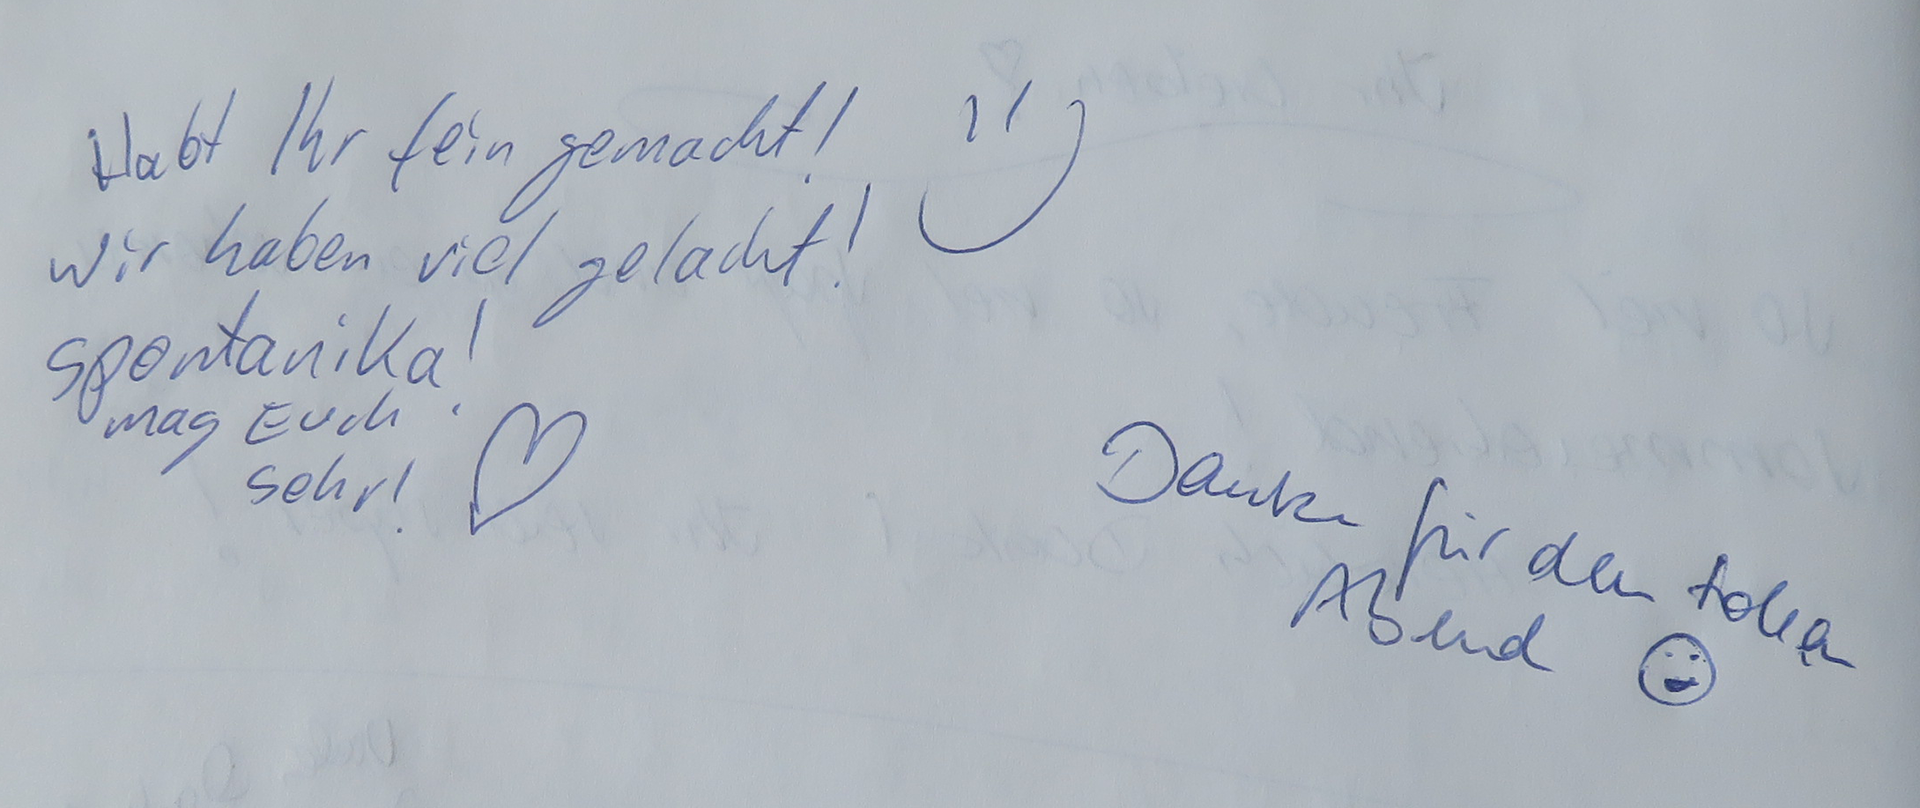 Habt Ihr fein gemacht!
wir haben viel gelacht!
Spontanika!
mag Euch
sehr!
Danke für den tollen
Abend